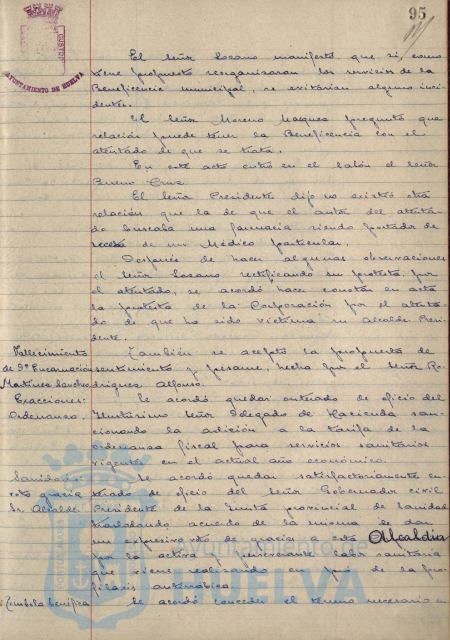 95
AYUNTAMIENTO DE HUELVA
El señor Lozano manifestó que si, como
tiene propuesto reorganizaran los servicios de la
Beneficencia municipal, se evitarían algunos inci-
dentes.
El señor Moreno Marques preguntó que
relación puede tener la Beneficencia con el
atentado de que se trata.
En este acto entró en el salón el señor
Bueno Cruz
El señor Presidente dijo no existió otra
relación que la de que el autor del atenta-
do buscaba una farmacia siendo portador de
receta de un Médico particular.
Después de hacer algunas observaciones
el señor Lozano rectificando su protesta por
el atentado, se acordó hacer constar en acta
la protesta de la Corporación por el atenta-
do de que ha sido víctima su Alcalde Presi-
dente.
Fallecimiento
de Dª Encarnación
Martínez Sanchez
También se aceptó la propuesta de
sentimiento y pesame, hecha por el señor Ro-
driguez Alfonso.
Exacciones:
Ordenanza.
Se acordó quedar enterado de oficio del
Ilustrísimo Señor Delegado de Hacienda san-
cionando la adición a la tarifa de la
ordenanza fiscal para servicios sanitarios
vigentes en el actual año económico.
Sanidad:
voto gracia
Sr. Alcalde.
Se acordó quedar satisfactoriamente en-
terado de oficio del Señor Gobernador civil
Presidente de la Junta provincial de Sanidad
trasladando acuerdo de la misma de dar
un expresivo voto de gracia a esta Alcaldía
por la activa perseverante labor sanitaria
que viene realizando en pró de la pro-
filaxis antirrábica.
Tómbola benéfica
Se acordó conceder el terreno necesario en
Ayuntamiento de
HUELVA